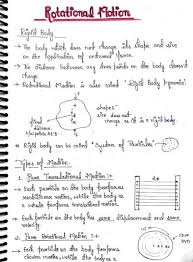 Rotational Motion
Rigid Body
→ The body which does not change its shape and size
on the application of external force.
→ The distance between any two points on the body doesn't
change.
→ Rotational motion is also called "Rigid Body Dynamics"
shapes
size does
not change
A
B
→ A rigid body is also called "System of Particles"
Types of Motion:-
1. Pure Translational Motion:-
→ Each particle on the body performs
motion, while the body is
→ Each particle on the body has same displacement and same
velocity.
2. Pure Rotational Motion:-
→ Each particle on the body performs
circular motion, while the body
CD or
DVD